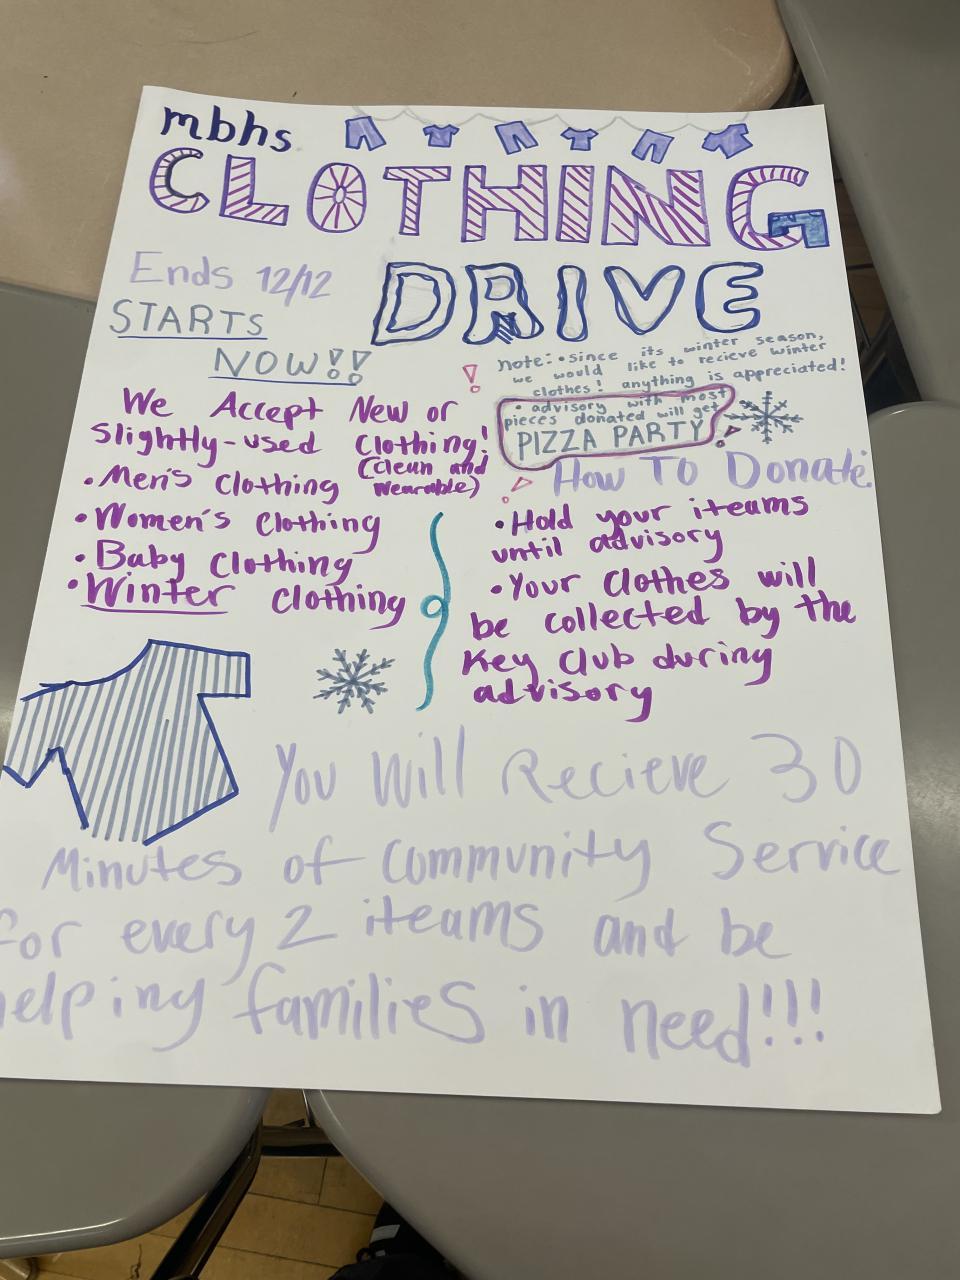 mbhs
CLOTHING
DRIVE
Ends 12/12
STARTS
NOW!!
note: • since its winter season,
we would like to recieve winter
clothes! anything is appreciated!
• advisory with most
pieces donated will get
PIZZA PARTY
!
!
!
We Accept New or
Slightly-used Clothing!
(Clean and
Wearable)
• Men's Clothing
• Women's Clothing
• Baby Clothing
• Winter Clothing
How To Donate:
• Hold your iteams
until advisory
• Your Clothes will
be collected by the
Key Club during
advisory
You Will Recieve 30
Minutes of Community Service
for every 2 iteams and be
helping families in need!!!